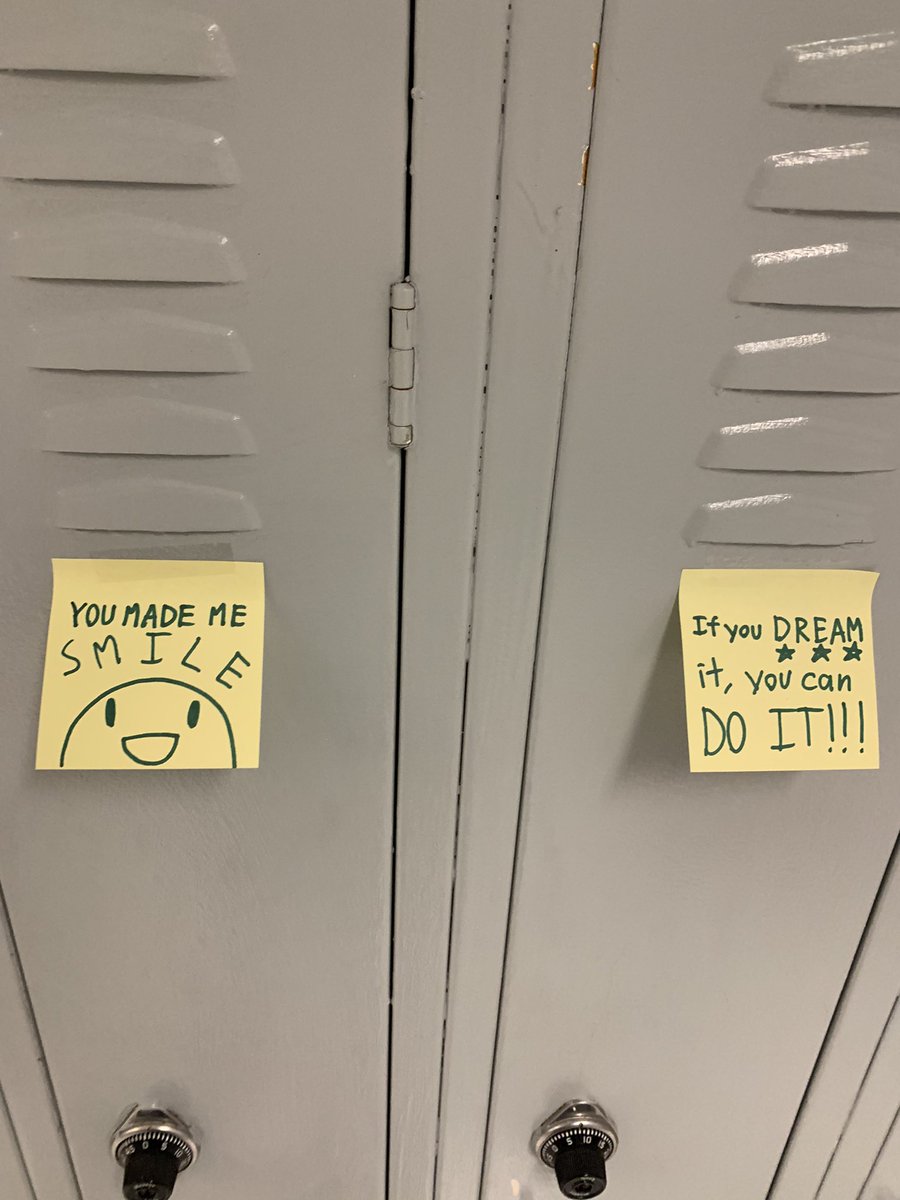 YOU MADE ME
SMILE
If you DREAM
it, you can
DO IT!!!
0 5
0 5 10 15